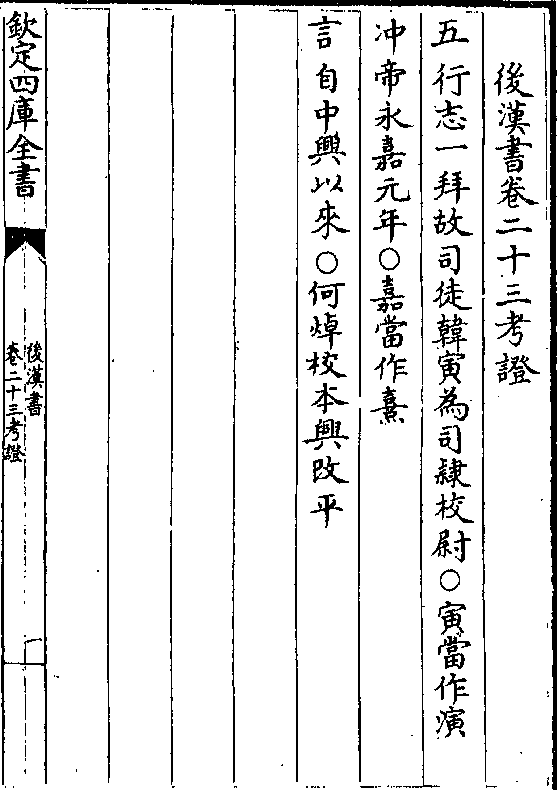 後漢書卷二十三考證
五行志一拜故司徒韓寅為司隸校尉○寅當作演
冲帝永嘉元年○嘉當作熹
言自中興以來○何焯校本興改平
欽定四庫全書
後漢書
卷二十三考證
一